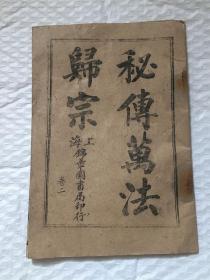 秘傳萬法
歸宗
上海錦章圖書局印行
卷二